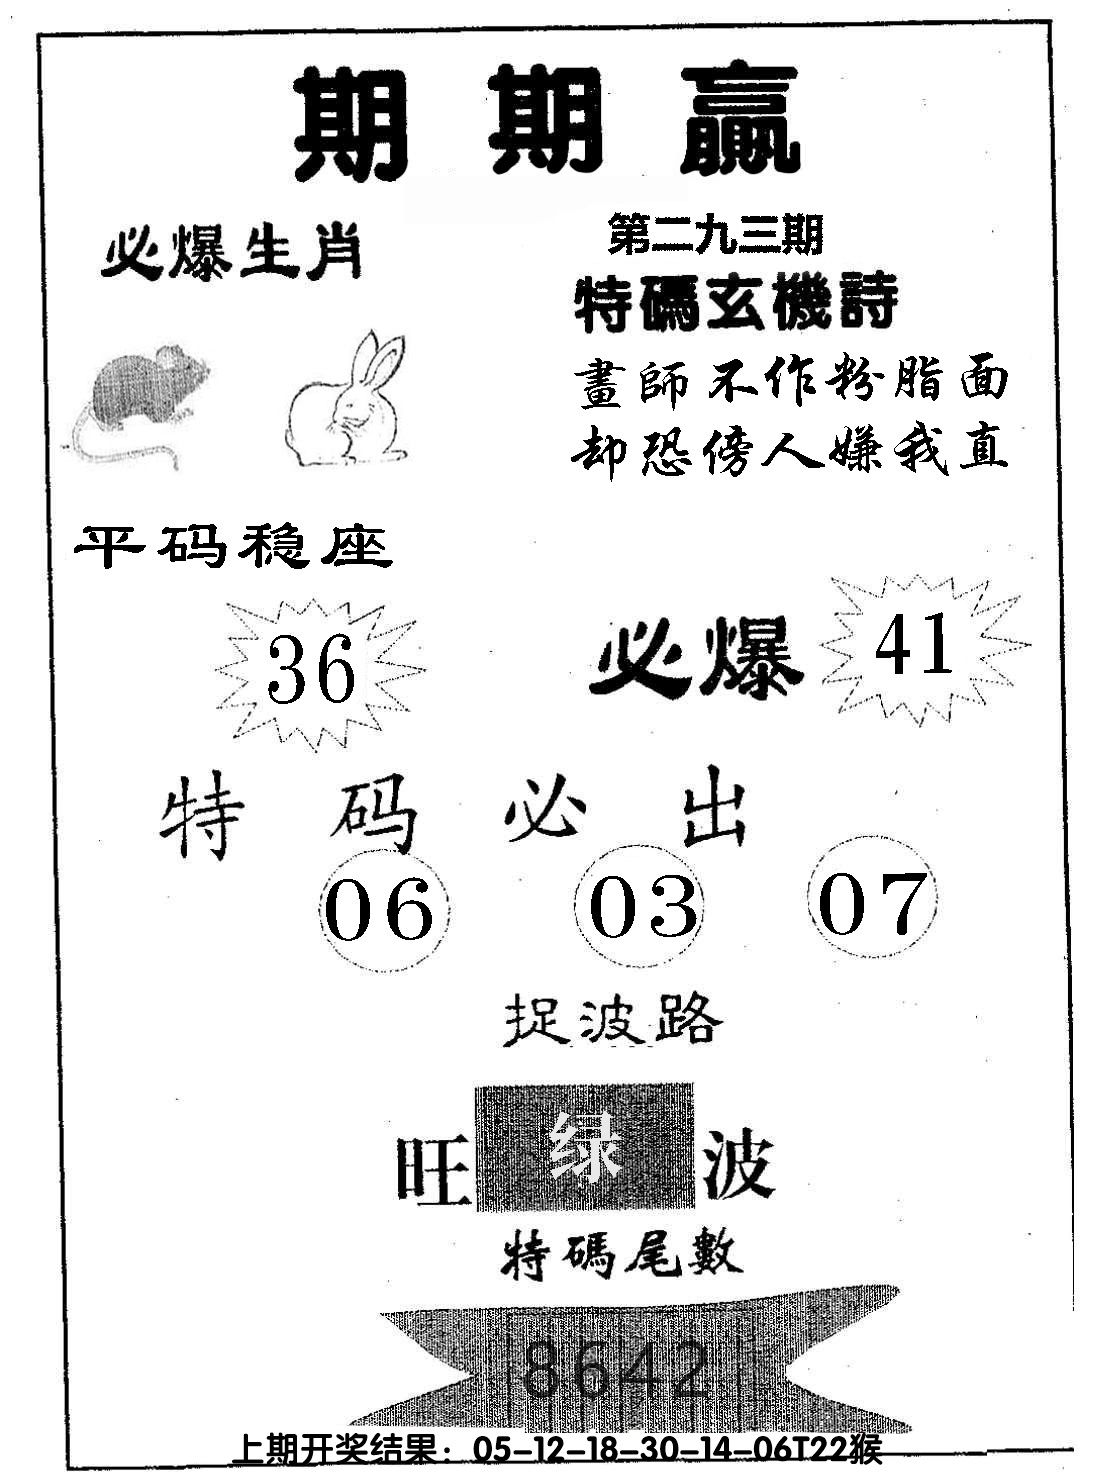 期期赢
必爆生肖
第二九三期
特碼玄機詩
畫師不作粉脂面
却恐傍人嫌我直
平码稳座
36
必爆 41
特码必出
06 03 07
捉波路
旺 绿 波
特碼尾數
8642
上期开奖结果：05-12-18-30-14-06T22猴